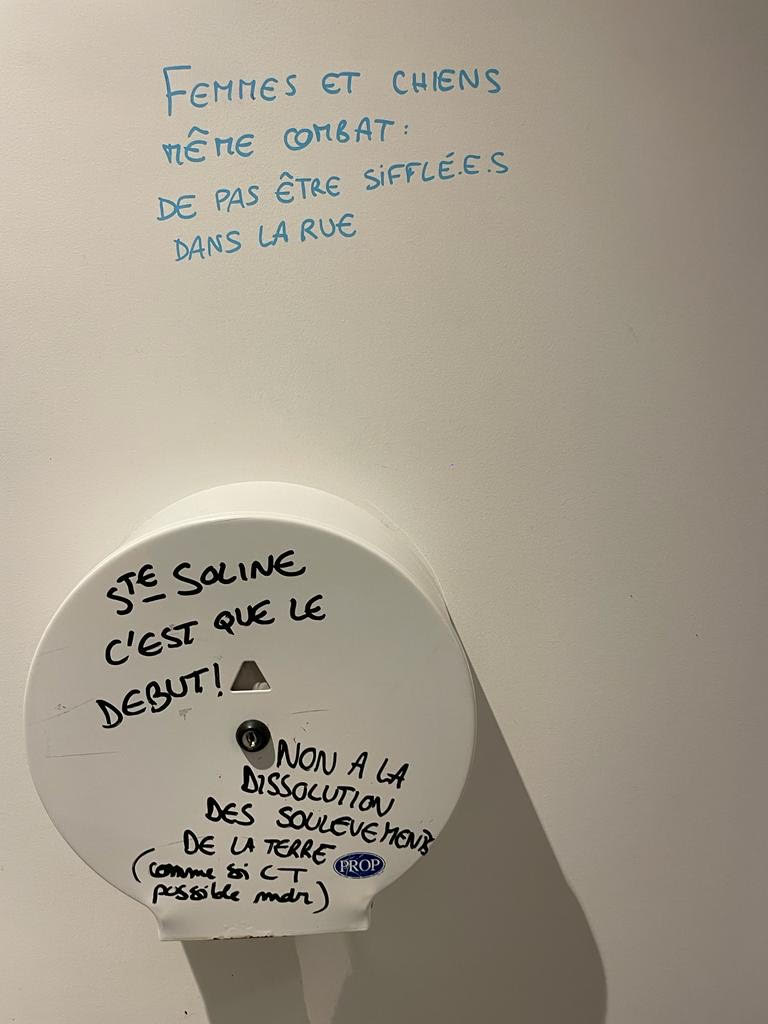 FEMMES ET CHIENS
MÊME COMBAT :
DE PAS ÊTRE SIFFLÉ.E.S
DANS LA RUE
STE SOLINE
C'EST QUE LE
DEBUT!
NON A LA
DISSOLUTION
DES SOULEVEMENTS
DE LA TERRE
(comme si CT
possible mdr)
PROP